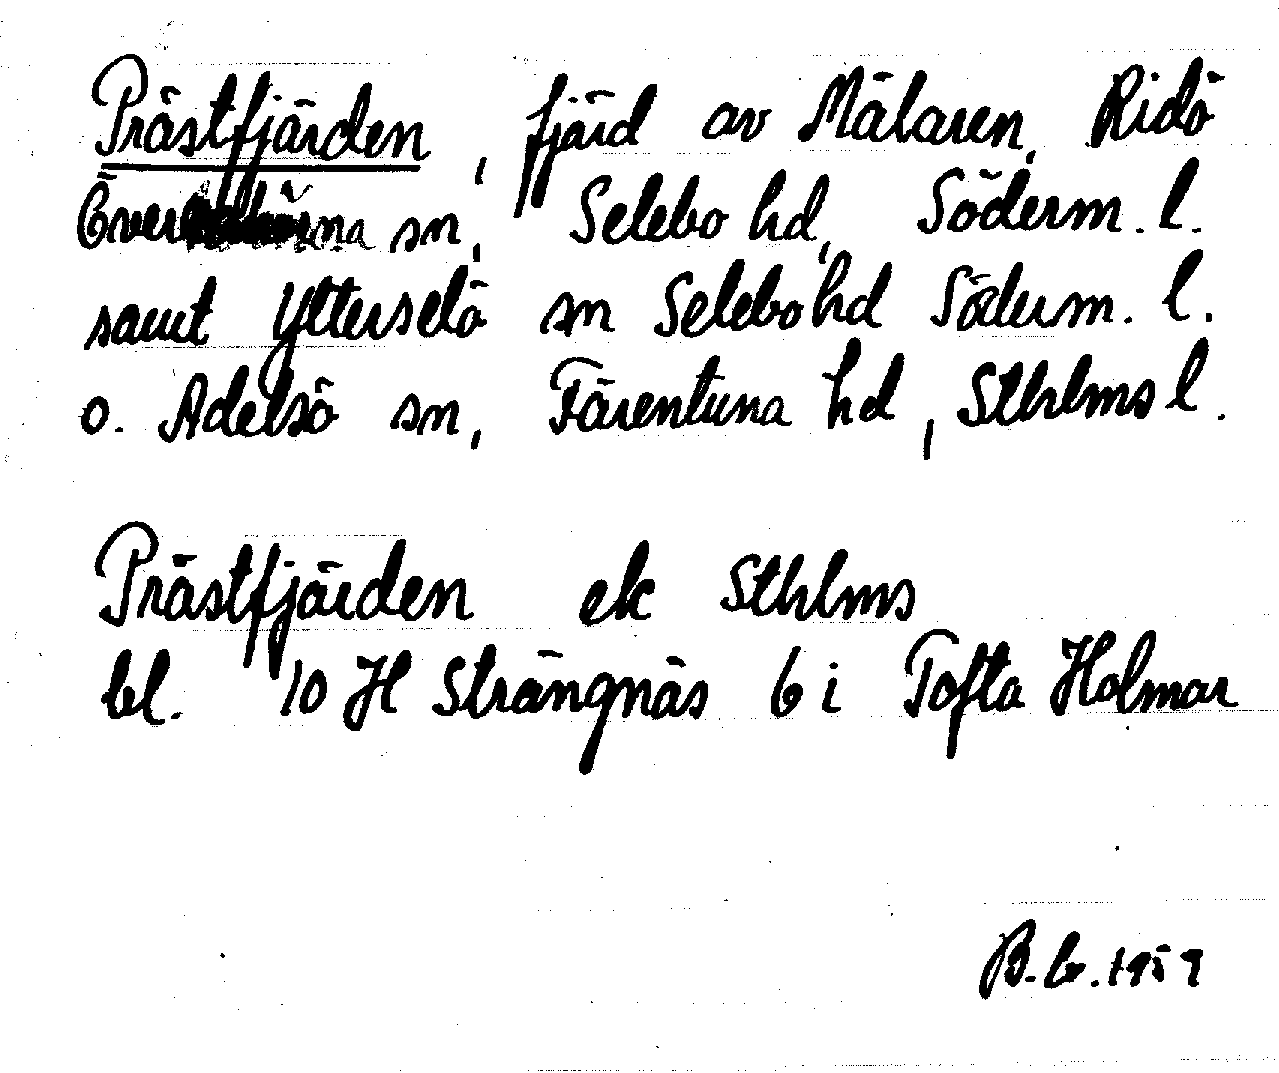 Prästfjärden, fjärd av Mälaren, Ridö
sn, Selebo hd, Söderm. l.
samt Ytterselö sn Selebo hd Söderm. l.
o. Adelsö sn, Färentuna hd, Sthlms l.
Prästfjärden ek Sthlms
bl. 10 H Strängnäs 6 i Tofta Holmar
B. G. 1959